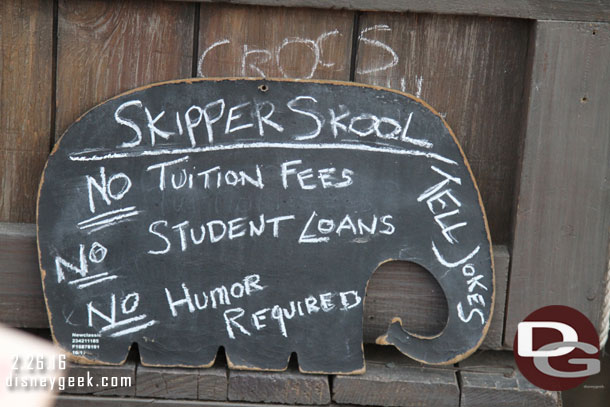 CROCS
SKIPPER SKOOL
NO TUITION FEES
NO STUDENT LOANS
NO HUMOR
REQUIRED
KELL JOKES
Newclassic
2.26.16
disneygeek.com
DG